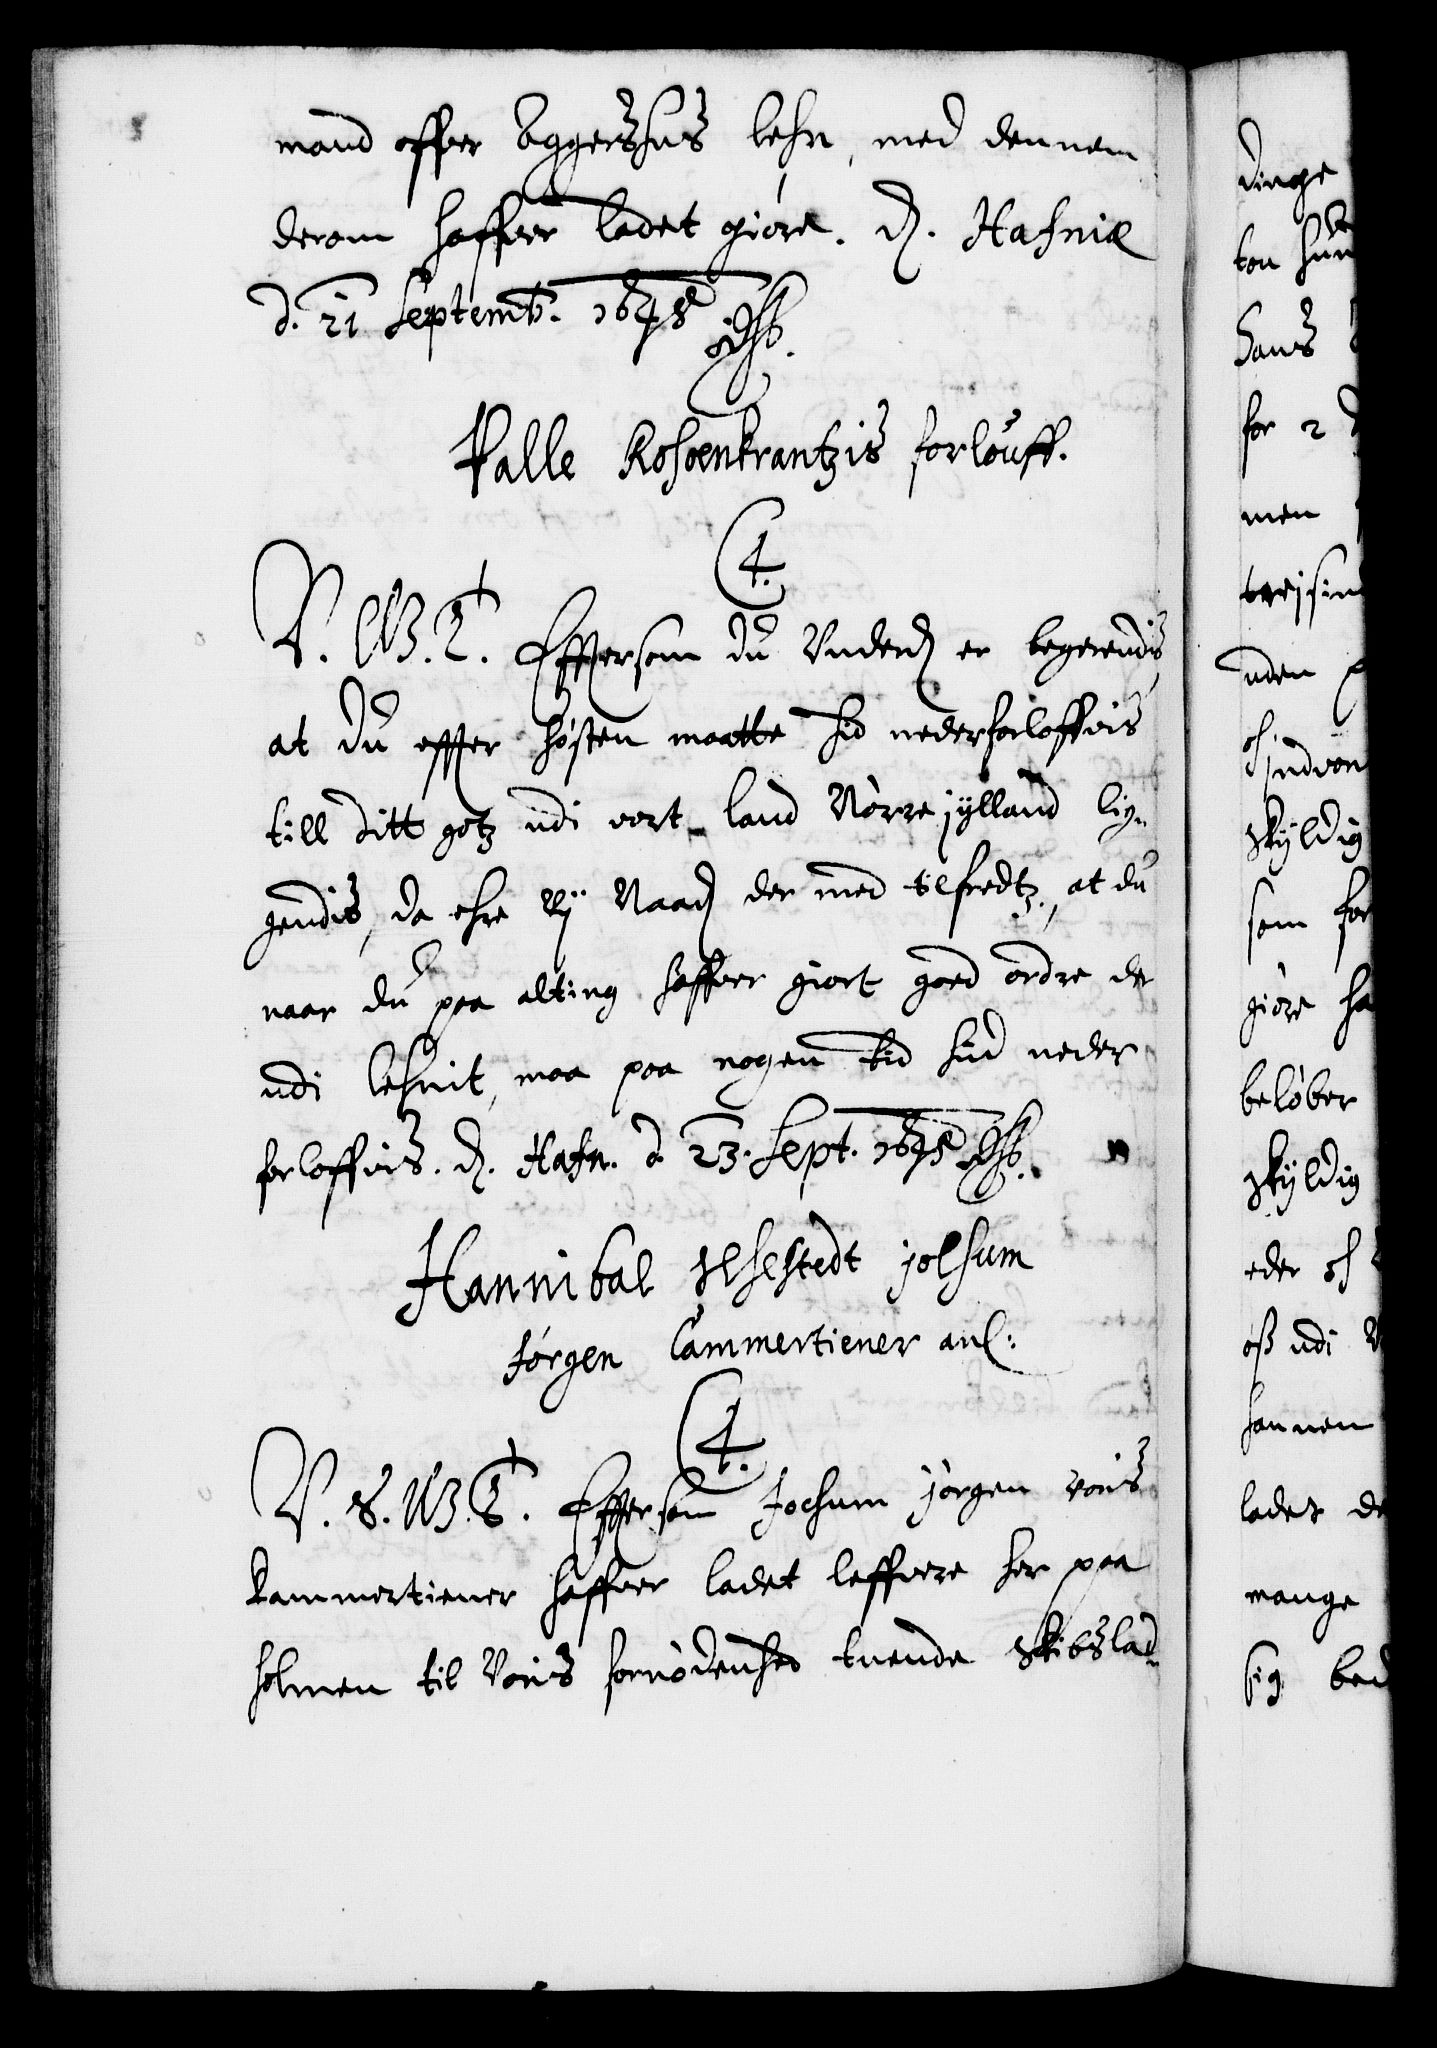 mand offver Aggershus lehn, med dennem
derom haffver ladet giöre. D. Hafniæ
d. 21 Septemb. 1648
Palle Rosenkrantzis forlouff.
C4.
V. G. T. Effersom du Underd er begerendis
at du effter høsten maatte hid nederforloffvis
till ditt gotz udi vort land Nörre jylland lig¬
gendis, da ehre Vij Naad der med tilfredtz, at du
naar du paa alting haffver giort goed ordre der
udi lehnit, maa paa nogen tid hid neder
forloffvis. D. Hafn. d 23. Sept. 1648
Hannibal Sehestedt johum
Jörgen Cammertiener anl:
C4.
V. S. G. T. Effersom Jochum jörgen voris
kammertiener haffver ladet leffvere her paa
holmen til Voris fornödenhed tuende skibslad¬
dinge
ton hun
Hans
for 2
men
treisin
uden
indvon
skyldig
som for
giöre ha
belöber
skyldig
eder oh
oss udi
hannem
lader de
mange
sig bed